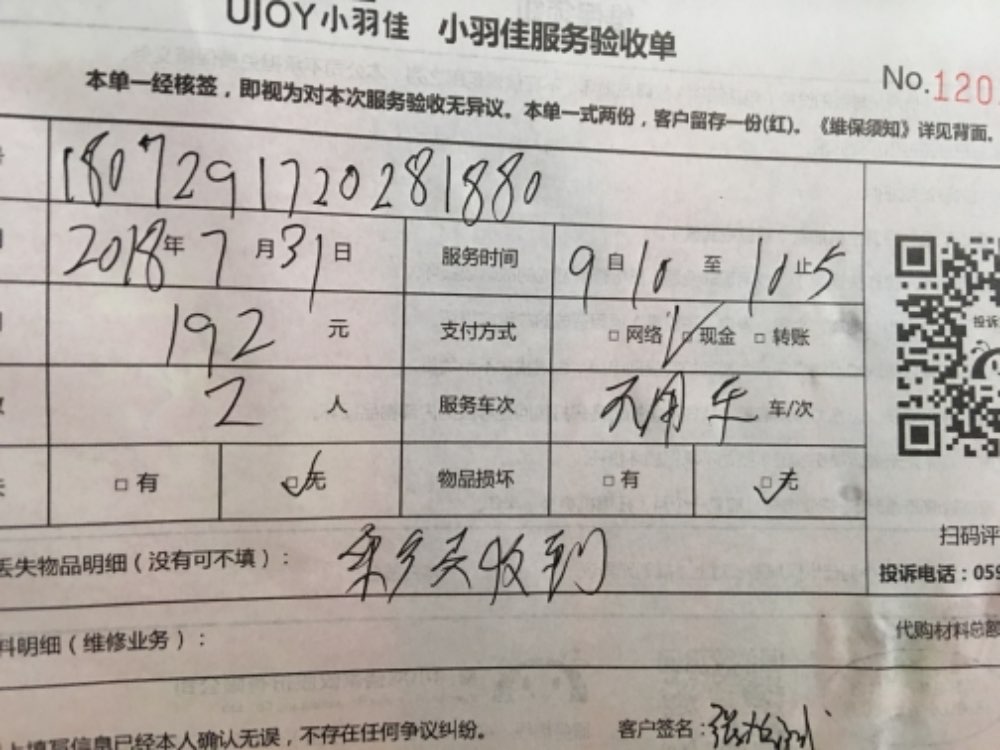 UJOY小羽佳 小羽佳服务验收单
No.120
本单一经核签，即视为对本次服务验收无异议。本单一式两份，客户留存一份(红)。《维保须知》详见背面。
180729172028 1880
2018年7月31日 服务时间 9自10至10止5
192元 支付方式 □网络 □现金 □转账
2人 服务车次 不用车 车/次
□有 □无 物品损坏 □有 □无
投诉
丢失物品明细（没有可不填）：
收到
扫码评
投诉电话：059
料明细（维修业务）：
代购材料总额
上填写信息已经本人确认无误，不存在任何争议纠纷。 客户签名：